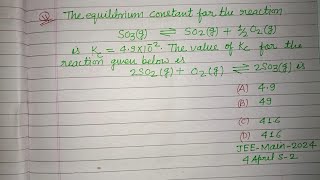 Q. The equilibrium constant for the reaction
SO3(g) ⇌ SO2(g) + 1/2 O2(g)
is Kc = 4.9×10². The value of Kc for the
reaction given below is
2SO2(g) + O2(g) ⇌ 2SO3(g) is
(A) 4.9
(B) 49
(C) 41.6
(D) 416
JEE-Main-2024
4 April S-2